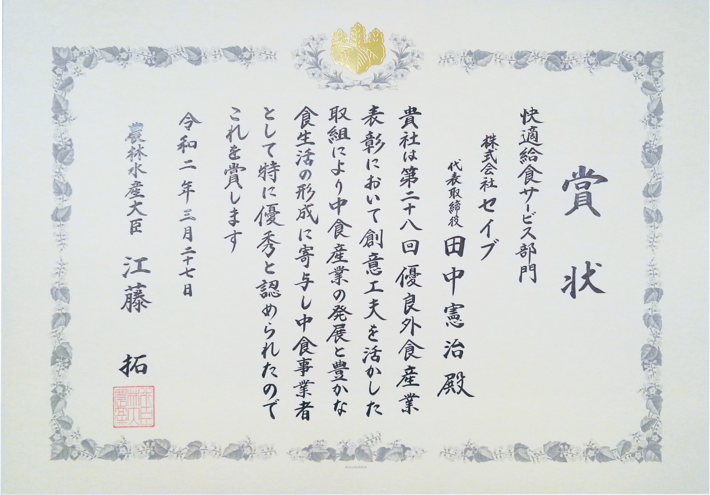 賞状
快適給食サービス部門
株式会社セイブ
代表取締役 田中憲治殿
貴社は第二十八回優良外食産業
表彰において創意工夫を活かした
取組により中食産業の発展と豊かな
食生活の形成に寄与し中食事業者
として特に優秀と認められたので
これを賞します
令和二年三月二十七日
農林水産大臣 江藤 拓